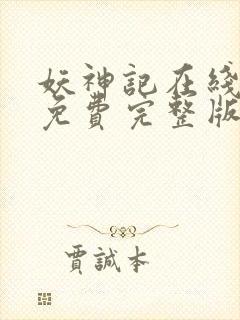 妖神記在綫
免費完整版
賈誠本